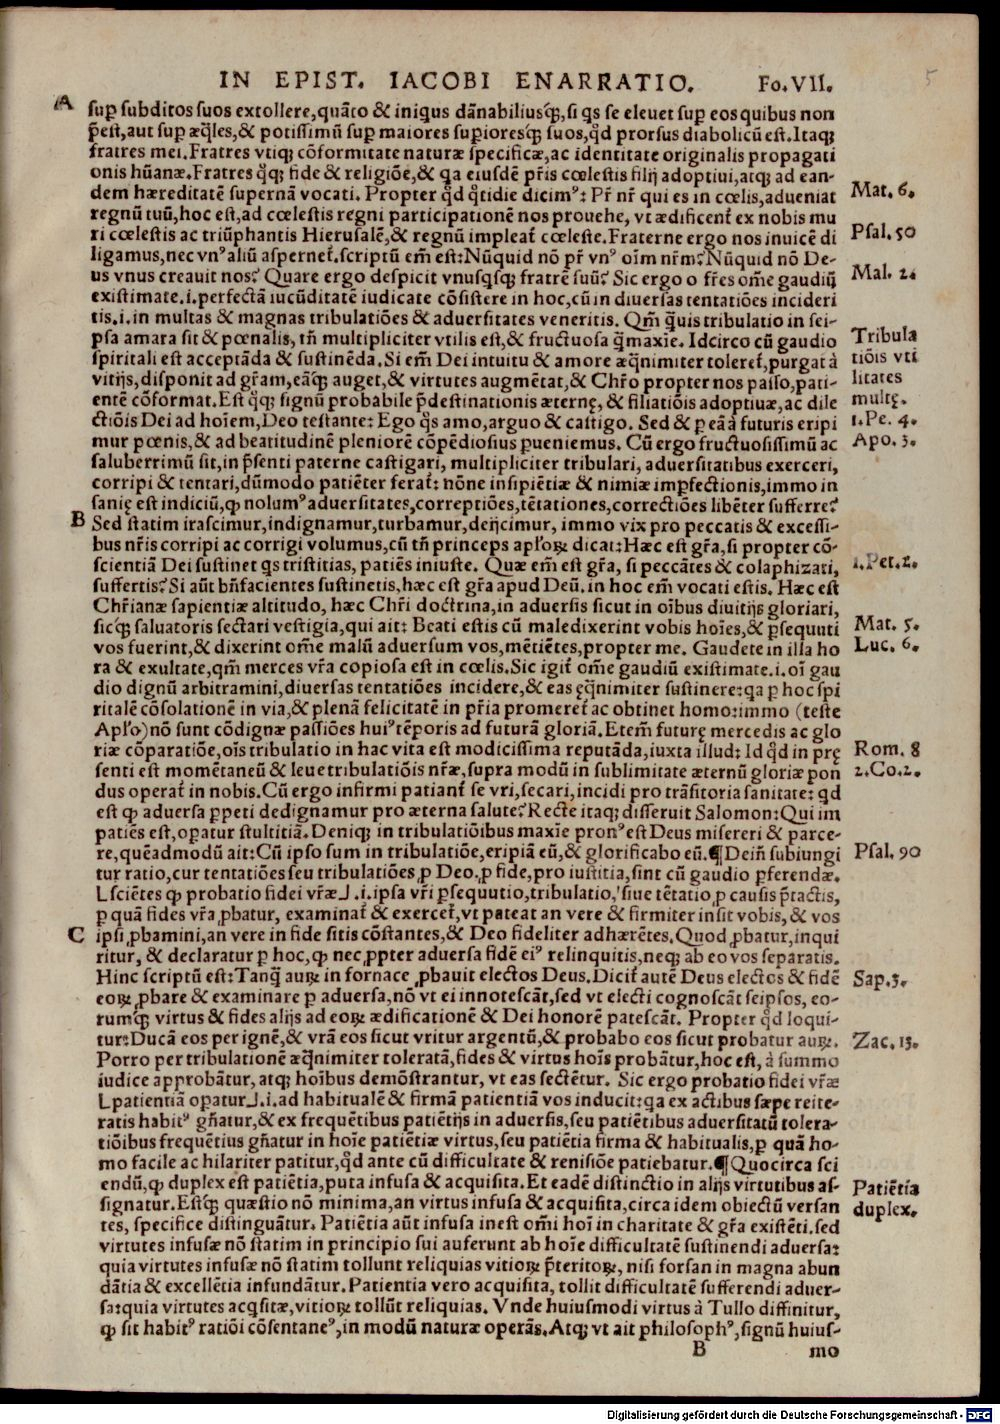 IN EPIST. IACOBI ENARRATIO. Fo. VII.
5
A
sup̱ subditos suos extollere, quãto & iniqͥus dãnabiliusq́ꝫ, si qͥs se eleuet sup̱ eos quibus non
p̃est, aut sup̱ æqͣles, & potissimũ sup̱ maiores sup̱ioresq́ꝫ suos, qͩ prorsus diabolicũ est. Itaqꝫ
fratres mei. Fratres vtiqꝫ cõformitate naturæ specificæ, ac identitate originalis propagati
onis hũanæ. Fratres qͦqꝫ fide & religiõe, & qa eiusdẽ pr̃is cœlestis filij adoptiui, atqꝫ ad ean-
dem hæreditatẽ supernã vocati. Propter qͩ qͦtidie dicimꝰ: Pr̃ nr̃ qui es in cœlis, adueniat
Mat. 6.
regnũ tuũ, hoc est, ad cœlestis regni participationẽ nos prouehe, vt ædificent̃ ex nobis mu
ri cœlestis ac triũphantis Hierusalẽ, & regnũ impleat̃ cœleste. Fraterne ergo nos inuicẽ di
Psal. 50
ligamus, nec vnꝰ aliũ aspernet̃. scriptũ em̃ est: Nũquid nõ pr̃ vnꝰ oĩm nr̃m? Nũquid nõ De-
us vnus creauit nos? Quare ergo despicit vnusqͥsqꝫ fratrẽ suũ? Sic ergo o fr̃es om̃e gaudiũ
Mal. 2.
existimate .i. perfectã iucũditatẽ iudicate cõsistere in hoc, cũ in diuersas tentatiões incideri
tis .i. in multas & magnas tribulatiões & aduersitates veneritis. Qm̃ qͣuis tribulatio in sei-
psa amara sit & pœnalis, tñ multipliciter vtilis est, & fructuosa qͣmaxĩe. Idcirco cũ gaudio
Tribula
tiõis vti
litates
multę.
spiritali est acceptãda & sustinẽda. Si em̃ Dei intuitu & amore æqͣnimiter toleret̃, purgat à
vitijs, disponit ad gr̃am, eãq́ꝫ auget, & virtutes augmẽtat, & Chr̃o propter nos passo, pati-
entẽ cõformat. Est qͦqꝫ signũ probabile p̃destinationis æternę, & filiatiõis adoptiuæ, ac dile
ctiõis Dei ad hoĩem, Deo testante: Ego qͦs amo, arguo & castigo. Sed & p̱ eã à futuris eripi
1. Pe. 4.
mur pœnis, & ad beatitudinẽ pleniorẽ cõpẽdiosius p̱ueniemus. Cũ ergo fructuosissimũ ac
Apo. 3.
saluberrimũ sit, in p̃senti paterne castigari, multipliciter tribulari, aduersitatibus exerceri,
corripi & tentari, dũmodo patiẽter ferat̃: nõne insipiẽtiæ & nimiæ imp̱fectionis, immo in
sanię est indiciũ, ꝙ nolumꝰ aduersitates, correptiões, tẽtationes, correctiões libẽter sufferre?
B
Sed statim irascimur, indignamur, turbamur, deijcimur, immo vix pro peccatis & excessi-
bus nr̃is corripi ac corrigi volumus, cũ tñ princeps apľoꝝ dicat: Hæc est gr̃a, si propter cõ-
scientiã Dei sustinet qͥs tristitias, patiẽs iniuste. Quæ em̃ est gr̃a, si peccãtes & colaphizati,
1. Pet. 2.
suffertis? Si aũt bñfacientes sustinetis, hæc est gr̃a apud Deũ. in hoc em̃ vocati estis. Hæc est
Chr̃ianæ sapientiæ altitudo, hæc Chr̃i doctrina, in aduersis sicut in oĩbus diuitijs gloriari,
sicq́ꝫ saluatoris sectari vestigia, qui ait: Beati estis cũ maledixerint vobis hoĩes, & p̱sequuti
Mat. 5.
vos fuerint, & dixerint om̃e malũ aduersum vos, mẽtiẽtes, propter me. Gaudete in illa ho
Luc. 6.
ra & exultate, qm̃ merces vr̃a copiosa est in cœlis. Sic igit̃ om̃e gaudiũ existimate .i. oĩ gau
dio dignũ arbitramini, diuersas tentatiões incidere, & eas ęqͣnimiter sustinere: qa p̱ hoc spi
ritalẽ cõsolationẽ in via, & plenã felicitatẽ in pr̃ia promeret̃ ac obtinet homo: immo (teste
Apľo) nõ sunt cõdignæ passiões huiꝰ tẽporis ad futurã gloriã. Etem̃ futurę mercedis ac glo
riæ cõparatiõe, oĩs tribulatio in hac vita est modicissima reputãda, iuxta illud: Id qͩ in prę
Rom. 8
senti est momẽtaneũ & leue tribulatiõis nr̃æ, supra modũ in sublimitate æternũ gloriæ pon
2. Co. 2.
dus operat̃ in nobis. Cũ ergo infirmi patiant̃ se vri, secari, incidi pro trãsitoria sanitate: qd
est ꝙ aduersa p̱peti dedignamur pro æterna salute? Recte itaqꝫ disseruit Salomon: Qui im
patiẽs est, op̱atur stultitiã. Deniqꝫ in tribulatiõibus maxĩe pronꝰ est Deus misereri & parce-
re, quẽadmodũ ait: Cũ ipso sum in tribulatiõe, eripiã eũ, & glorificabo eũ. ¶ Deiñ subiungi
Psal. 90
tur ratio, cur tentatiões seu tribulatiões ꝓ Deo, ꝓ fide, pro iustitia, sint cũ gaudio p̱ferendæ.
⌊sciẽtes ꝙ probatio fidei vr̃æ⌋ .i. ipsa vr̃i p̱sequutio, tribulatio, siue tẽtatio ꝓ causis p̃tactis,
p̱ quã fides vr̃a ꝓbatur, examinat̃ & exercet̃, vt pateat an vere & firmiter insit vobis, & vos
C
ipsi ꝓbamini, an vere in fide sitis cõstantes, & Deo fideliter adhærẽtes. Quod ꝓbatur, inqui
ritur, & declaratur p̱ hoc, ꝙ nec ꝓpter aduersa fidẽ eiꝰ relinquitis, neqꝫ ab eo vos separatis.
Hinc scriptũ est: Tanqͣ auꝝ in fornace ꝓbauit electos Deus. Dicit̃ autẽ Deus electos & fidẽ
Sap. 3.
eoꝝ ꝓbare & examinare p̱ aduersa, nõ vt ei innotescãt, sed vt electi cognoscãt seipsos, eo-
rumq́ꝫ virtus & fides alijs ad eoꝝ ædificationẽ & Dei honorẽ patescãt. Propter qͩ loqui-
tur: Ducã eos per ignẽ, & vrã eos sicut vritur argentũ, & probabo eos sicut probatur auꝝ.
Zac. 13.
Porro per tribulationẽ æqͣnimiter toleratã, fides & virtus hoĩs probãtur, hoc est, à summo
iudice approbãtur, atqꝫ hoĩbus demõstrantur, vt eas sectẽtur. Sic ergo probatio fidei vr̃æ
⌊patientiã op̱atur⌋ .i. ad habitualẽ & firmã patientiã vos inducit: qa ex actibus sæpe reite-
ratis habitꝰ gñatur, & ex frequẽtibus patiẽtijs in aduersis, seu patiẽtibus aduersitatũ tolera-
tiõibus frequẽtius gñatur in hoĩe patiẽtiæ virtus, seu patiẽtia firma & habitualis, p̱ quã ho-
mo facile ac hilariter patitur, qͩ ante cũ difficultate & renisiõe patiebatur. ¶ Quocirca sci
endũ, ꝙ duplex est patiẽtia, puta infusa & acquisita. Et eadẽ distinctio in alijs virtutibus as-
Patiẽtia
duplex.
signatur. Estq́ꝫ quæstio nõ minima, an virtus infusa & acquisita, circa idem obiectũ versan
tes, specifice distinguãtur. Patiẽtia aũt infusa inest om̃i hoĩ in charitate & gr̃a existẽti. sed
virtutes infusæ nõ statim in principio sui auferunt ab hoĩe difficultatẽ sustinendi aduersa:
quia virtutes infusæ nõ statim tollunt reliquias vitioꝝ p̃teritoꝝ, nisi forsan in magna abun
dãtia & excellẽtia infundãtur. Patientia vero acquisita, tollit difficultatẽ sufferendi aduer-
sa: quia virtutes acqͥsitæ, vitioꝝ tollũt reliquias. Vnde huiusmodi virtus à Tullo diffinitur,
ꝙ sit habitꝰ ratiõi cõsentaneꝰ, in modũ naturæ operãs. Atqꝫ vt ait philosophꝰ, signũ huius-
B
mo
Digitalisierung gefördert durch die Deutsche Forschungsgemeinschaft - DFG